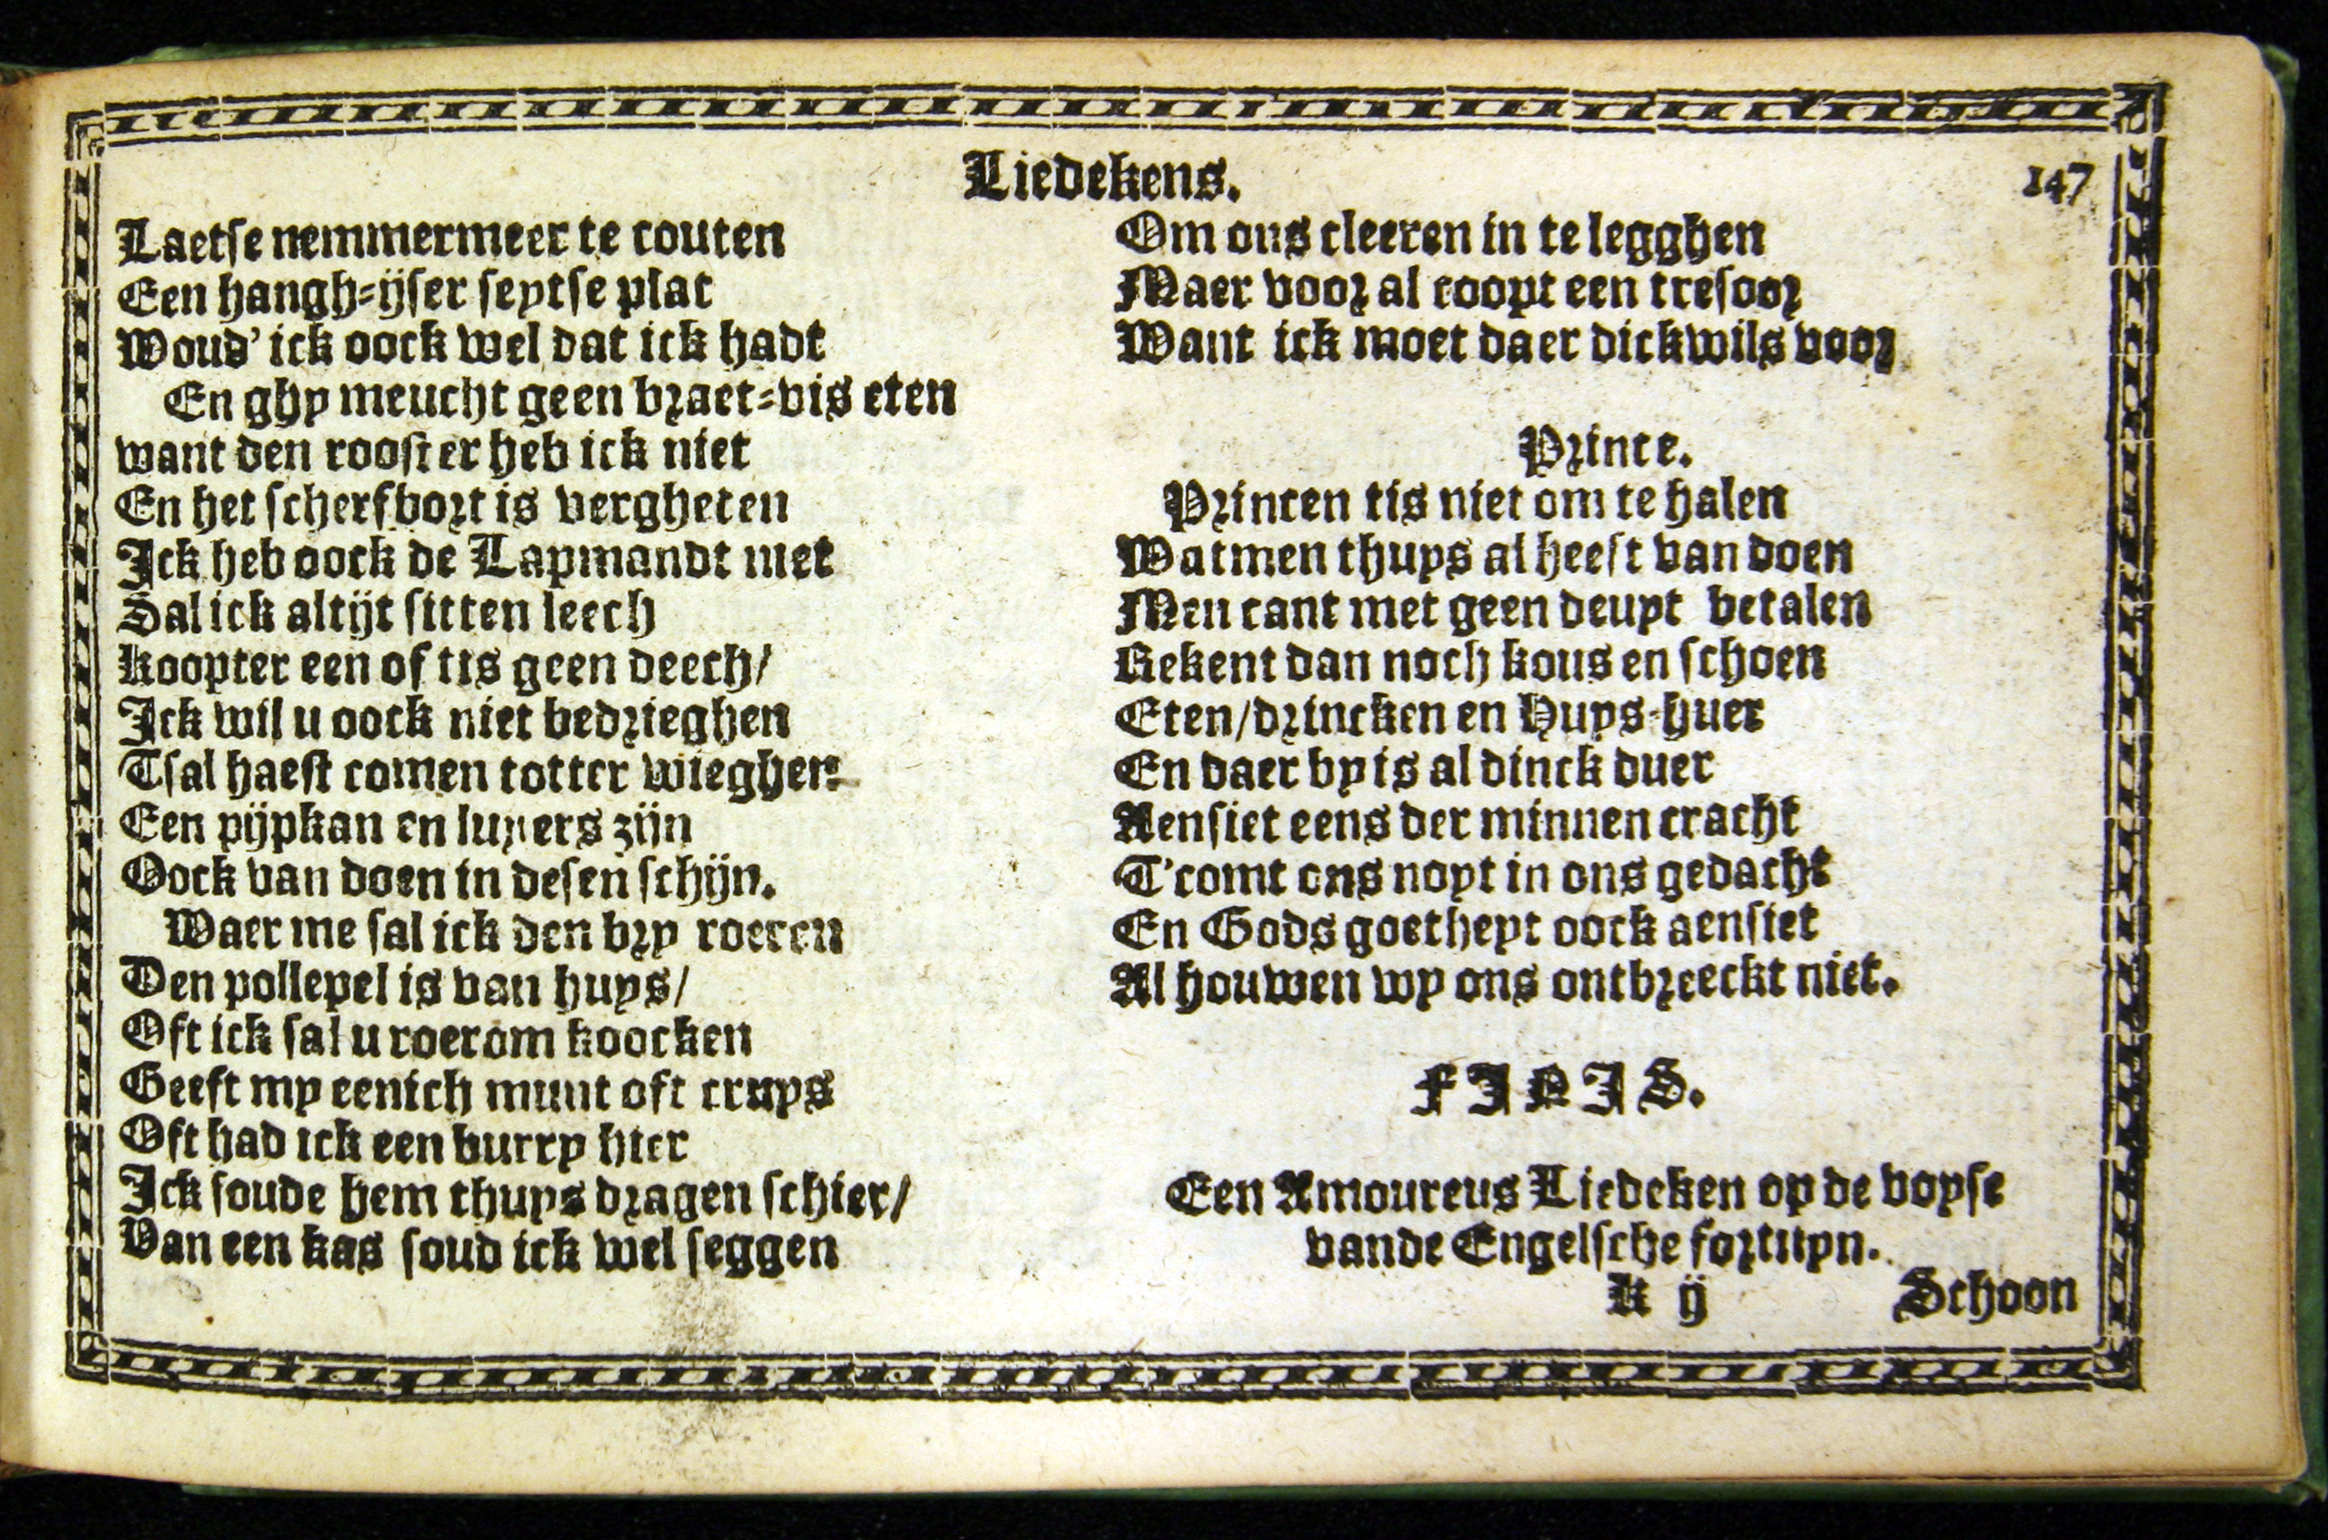 Liedekens.
147
Laetse nemmermeer te couten
Een hangh-ijser seytse plat
Woud' ick oock wel dat ick hadt
En ghy meucht geen braet-vis eten
want den rooster heb ick niet
En het scherfbort is vergheten
Ick heb oock de Lapmandt niet
Sal ick altijt sitten leech
Koopter een of tis geen deech/
Ick wil u oock niet bedrieghen
Tsal haest comen totter wieghen
Een pijpkan en luyers zijn
Oock van doen in desen schijn.
Waer me sal ick den bry roeren
Den pollepel is van huys/
Oft ick sal u roerom koocken
Geeft my eenich munt oft cruys
Oft had ick een burry hier
Ick soude hem thuys dragen schier/
Van een kas soud ick wel seggen
Om ons cleeren in te legghen
Maer voor al coopt een tresoor
Want ick moet daer dickwils voor
Prince.
Princen tis niet om te halen
Watmen thuys al heeft van doen
Men cant met geen deuyt betalen
Rekent dan noch kous en schoen
Eten/drincken en Huys-huer
En daer by is al dinck duer
Aensiet eens der minnen cracht
T'comt ons noyt in ons gedacht
En Gods goetheyt oock aensiet
Al houwen wy ons ontbreeckt niet.
FINIS.
Een Amoureus Liedeken op de voyse
vande Engelsche fortuyn.
K ij
Schoon